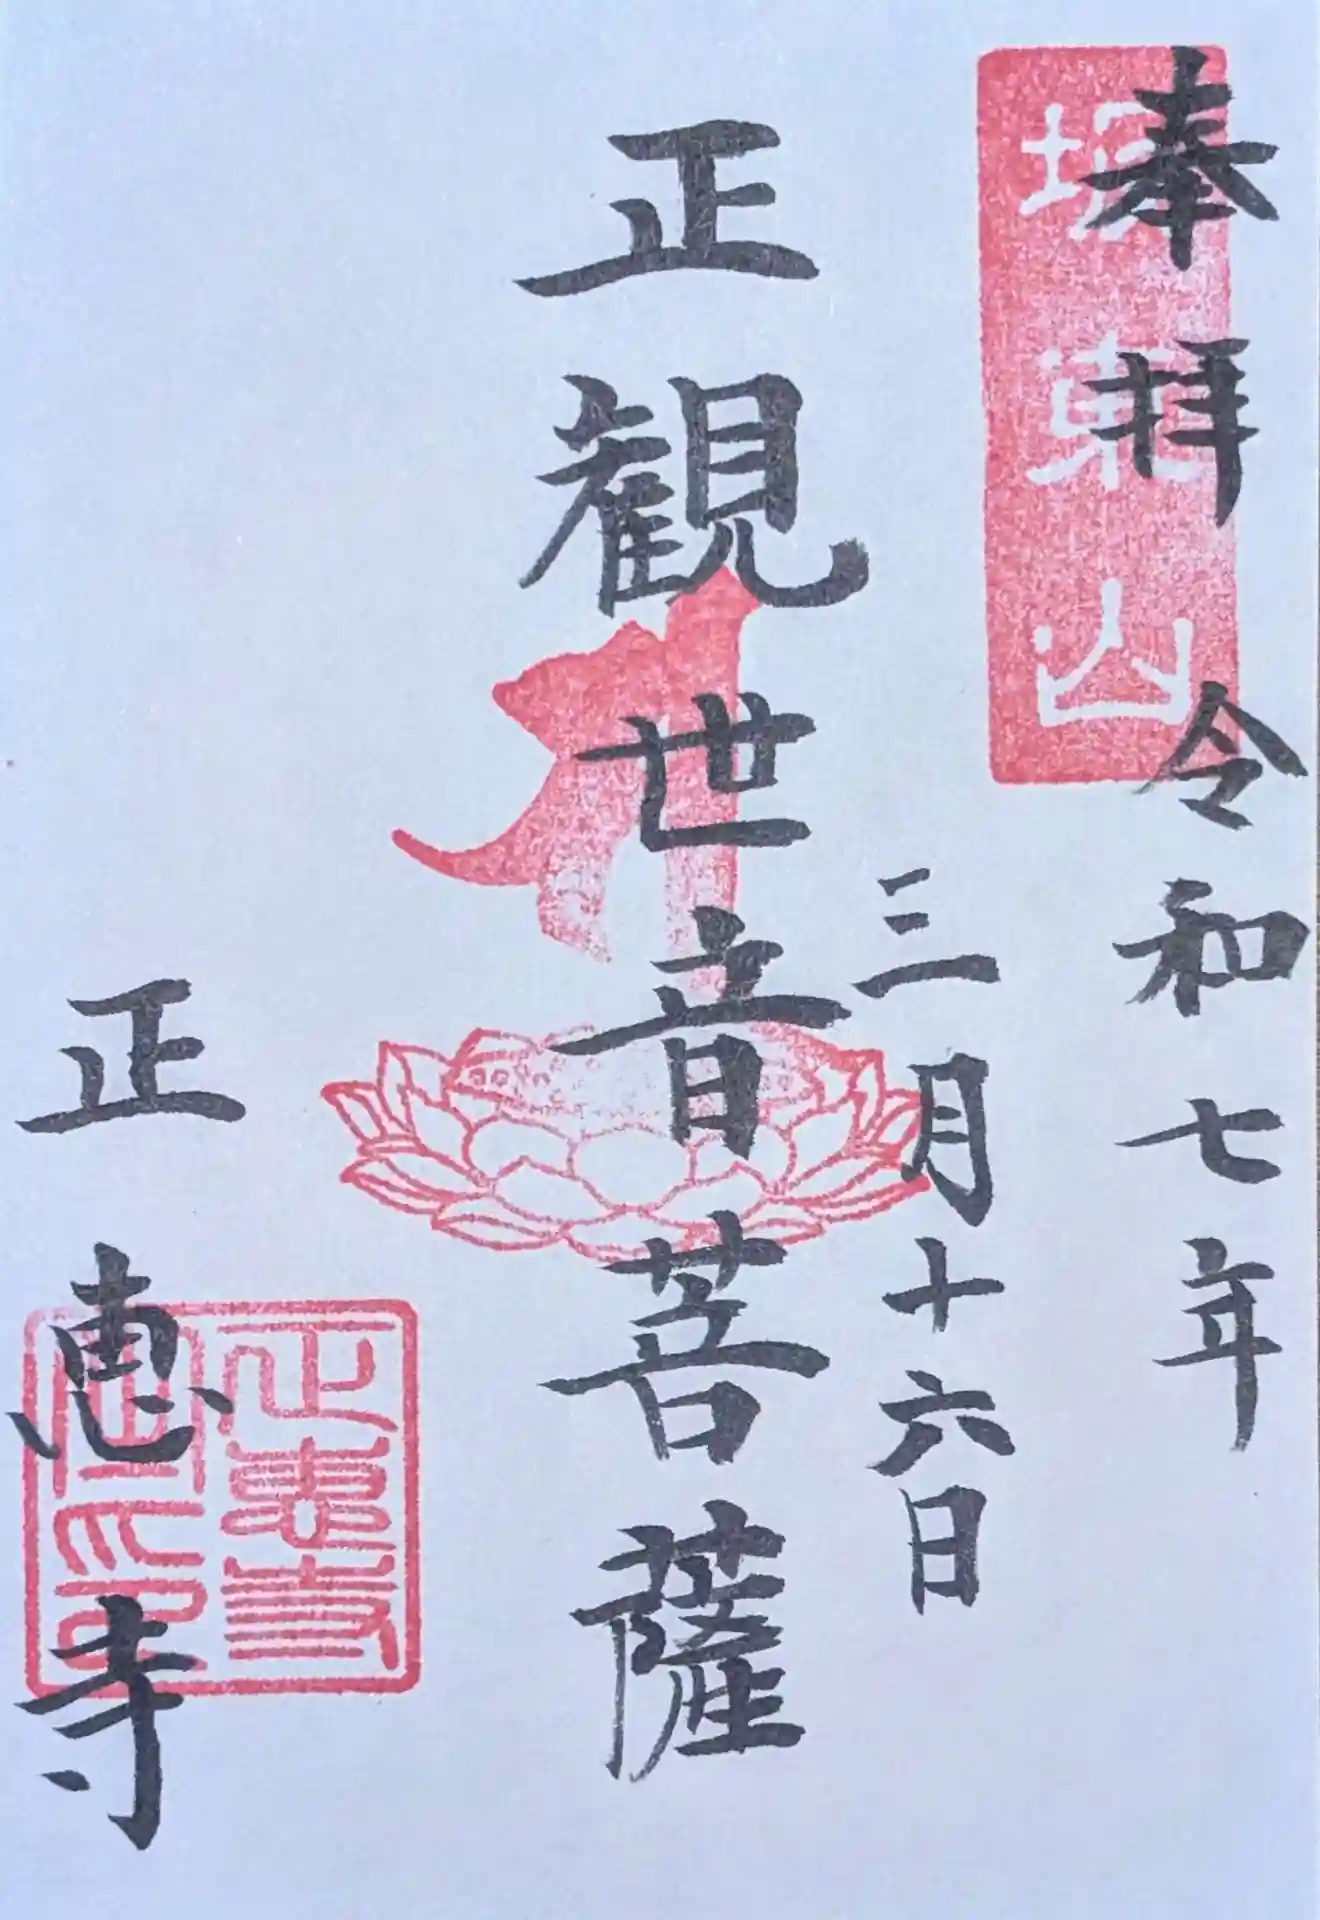 奉拝
令和七年
三月十六日
坂東山
正観世音菩薩
正恵寺